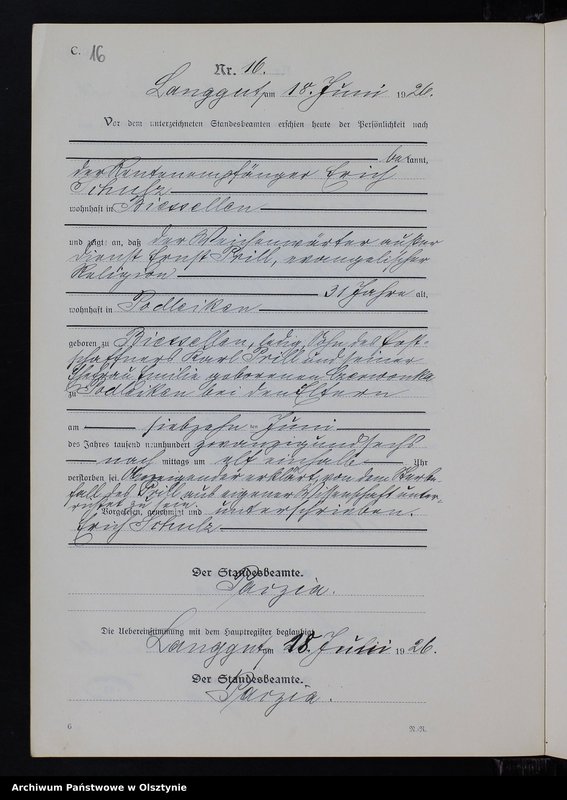 C. 16
Nr. 16.
Langgut, am 18. Juni 1926.
Vor dem unterzeichneten Standesbeamten erschien heute der Persönlichkeit nach
bekannt,
der Rentenempfänger Erich
Schulz
wohnhaft in Biessellen
und zeigt an, daß der Weichenwärter außer
Dienst Ernst Prill, evangelischer
Religion
31 Jahre alt,
wohnhaft in Podleiken
geboren zu Biessellen, ledig, Sohn des Post-
schaffners Karl Prill und seiner
Ehefrau Emilie geborenen Czerwonka
zu Podleiken bei den Eltern
am siebzehn ten Juni
des Jahres tausend neunhundert zwanzigundsechs
nach mittags um elf einhalb Uhr
verstorben sei. Anzeigender erklärt, von dem Sterbe-
fall des Prill aus eigener Wissenschaft unter-
richtet zu sein.
Vorgelesen, genehmigt und unterschrieben.
Erich Schulz
Der Standesbeamte.
Parzia.
Die Uebereinstimmung mit dem Hauptregister beglaubigt
Langgut, am 18. Juli 1926.
Der Standesbeamte.
Parzia.
6
N.N.
Archiwum Państwowe w Olsztynie